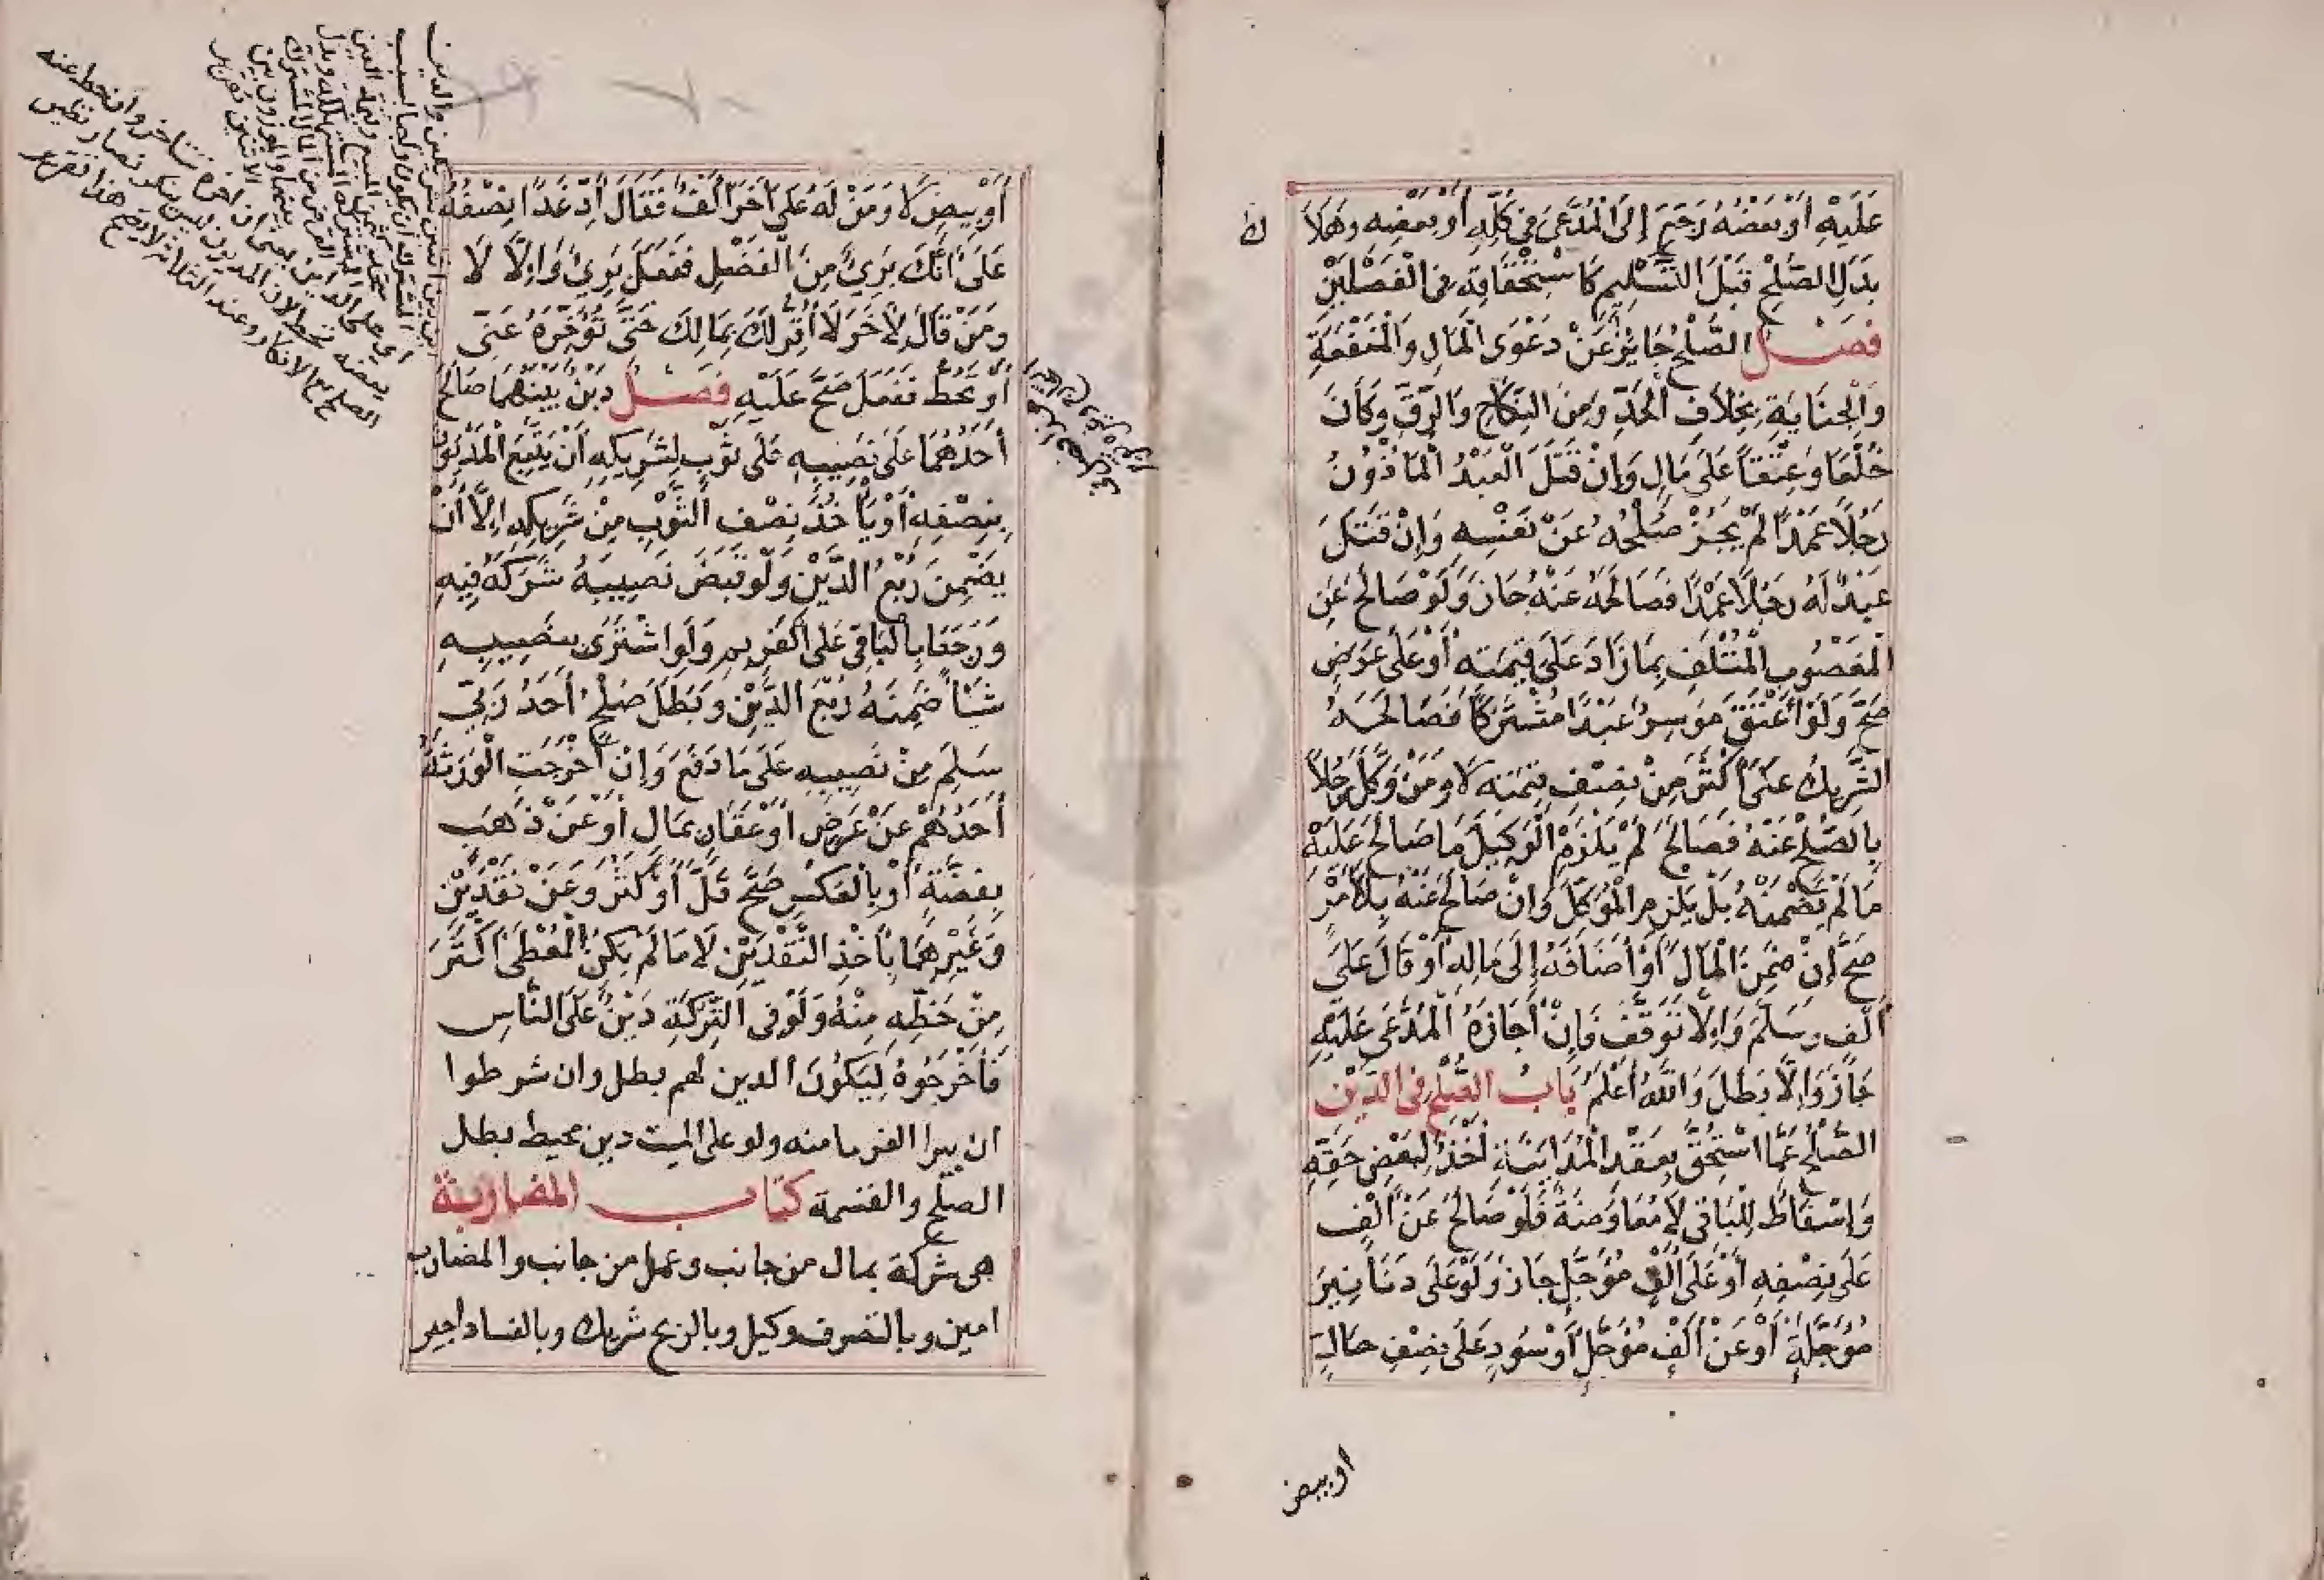 عَلَيْهِ أَوْ بَعْضُهُ رَجَعَ إِلَى الْمُدَّعَى فِي كُلِّهِ أَوْ بَعْضِهِ وَهَلَاكُ
بَدَلِ الصُّلْحِ قَبْلَ التَّسْلِيمِ كَاسْتِحْقَاقِهِ فِي الْفَصْلَيْنِ
فصل الصُّلْحُ جَائِزٌ عَنْ دَعْوَى الْمَالِ وَالْمَنْفَعَةِ
وَالْجِنَايَةِ بِخِلَافِ الْحَدِّ وَمِنَ النِّكَاحِ وَالرِّقِّ وَكَانَ
خُلْعًا وَعِتْقًا عَلَى مَالٍ وَإِنْ قَتَلَ الْعَبْدُ الْمَاذُونُ
رَجُلًا عَمْدًا لَمْ يَجُزْ صُلْحُهُ عَنْ نَفْسِهِ وَإِنْ قَتَلَ
عَبْدٌ لَهُ رَجُلًا عَمْدًا فَصَالَحَهُ عَنْهُ جَازَ وَلَوْ صَالَحَ عَنِ
الْمَغْصُوبِ الْمُتْلَفِ بِمَا زَادَ عَلَى قِيمَتِهِ أَوْ عَلَى عَرَضٍ
صَحَّ وَلَوْ أَعْتَقَ مُوسِرٌ عَبْدًا مُشْتَرَكًا فَصَالَحَهُ
الشَّرِيكُ عَلَى أَكْثَرَ مِنْ نِصْفِ قِيمَتِهِ لَا وَمَنْ وَكَّلَ رَجُلًا
بِالصُّلْحِ عَنْهُ فَصَالَحَ لَمْ يَلْزَمِ الْوَكِيلَ مَا صَالَحَ عَلَيْهِ
مَا لَمْ يَضْمَنْهُ بَلْ يَلْزَمِ الْمُوَكِّلَ وَإِنْ صَالَحَ عَنْهُ بِلَا أَمْرٍ
صَحَّ إِنْ ضَمِنَ الْمَالَ أَوْ أَضَافَهُ إِلَى مَالِهِ أَوْ قَالَ عَلَى
أَلْفٍ وَسَلَّمَ وَإِلَّا تَوَقَّفَ فَإِنْ أَجَازَهُ الْمُدَّعَى عَلَيْهِ
جَازَ وَإِلَّا بَطَلَ وَاللَّهُ أَعْلَمُ بَابُ الصُّلْحِ فِي الدَّيْنِ
الصُّلْحُ عَمَّا اسْتُحِقَّ بِعَقْدِ الْمُدَايَنَةِ أَخْذٌ لِبَعْضِ حَقِّهِ
وَإِسْقَاطٌ لِلْبَاقِي لَا مُعَاوَضَةٌ فَلَوْ صَالَحَ عَنْ أَلْفٍ
عَلَى نِصْفِهِ أَوْ عَلَى أَلْفٍ مُؤَجَّلٍ جَازَ وَلَوْ عَلَى دَنَانِيرَ
مُؤَجَّلَةٍ أَوْ عَنْ أَلْفٍ مُؤَجَّلٍ أَوْ سُودٍ عَلَى نِصْفِ حَالٍ
اوبيض
أَوْ بِيضٍ لَا وَمَنْ لَهُ عَلَى آخَرَ أَلْفٌ فَقَالَ أَدِّ غَدًا نِصْفَهُ
عَلَى أَنَّكَ بَرِيٌّ مِنَ الْفَضْلِ فَفَعَلَ بَرِئَ وَإِلَّا لَا
وَمَنْ قَالَ لِآخَرَ لَا أُقِرُّ لَكَ بِمَالِكَ حَتَّى تُؤَخِّرَهُ عَنِّي
أَوْ تَحُطَّ فَفَعَلَ صَحَّ عَلَيْهِ فصل دَيْنٌ بَيْنَهُمَا صَالَحَ
أَحَدُهُمَا عَلَى نَصِيبِهِ عَلَى ثَوْبٍ لِشَرِيكِهِ أَنْ يَتْبَعَ الْمَدْيُونَ
بِنِصْفِهِ أَوْ يَأْخُذَ نِصْفَ الثَّوْبِ مِنْ شَرِيكِهِ إِلَّا أَنْ
يَضْمَنَ رُبْعَ الدَّيْنِ وَلَوْ قَبَضَ نَصِيبَهُ شَرِكَهُ فِيهِ
وَرَجَعَا بِالْبَاقِي عَلَى الْغَرِيمِ وَلَوِ اشْتَرَى بِنَصِيبِهِ
شَيْئًا ضَمِنَهُ رُبْعَ الدَّيْنِ وَبَطَلَ صُلْحُ أَحَدُ رَبَّي
سَلَمٍ مِنْ نَصِيبِهِ عَلَى مَا دَفَعَ وَإِنْ أَخْرَجَتِ الْوَرَثَةُ
أَحَدَهُمْ عَنْ عَرَضٍ أَوْ عَقَارٍ بِمَالٍ أَوْ عَنْ ذَهَبٍ
بِفِضَّةٍ أَوْ بِالْعَكْسِ صَحَّ قَلَّ أَوْ كَثُرَ وَعَنْ نَقْدَيْنِ
وَغَيْرِهِمَا بِأَخْذِ النَّقْدَيْنِ لَا مَا لَمْ يَكُنِ الْمُعْطَى أَكْثَرَ
مِنْ حَظِّهِ مِنْهُ وَلَوْ فِي التَّرِكَةِ دَيْنٌ عَلَى النَّاسِ
فَأَخْرَجُوهُ لِيَكُونَ الدين لهم بطل وان شرطوا
ان يبرا الغرما منه ولو على الميت دين محيط بطل
الصلح والقسمة كتاب المضاربة
هى شركة بمال من جانب وعمل من جانب والمضارب
امين وبالتصرف وكيل وبالربح شريك وبالفساد اجير